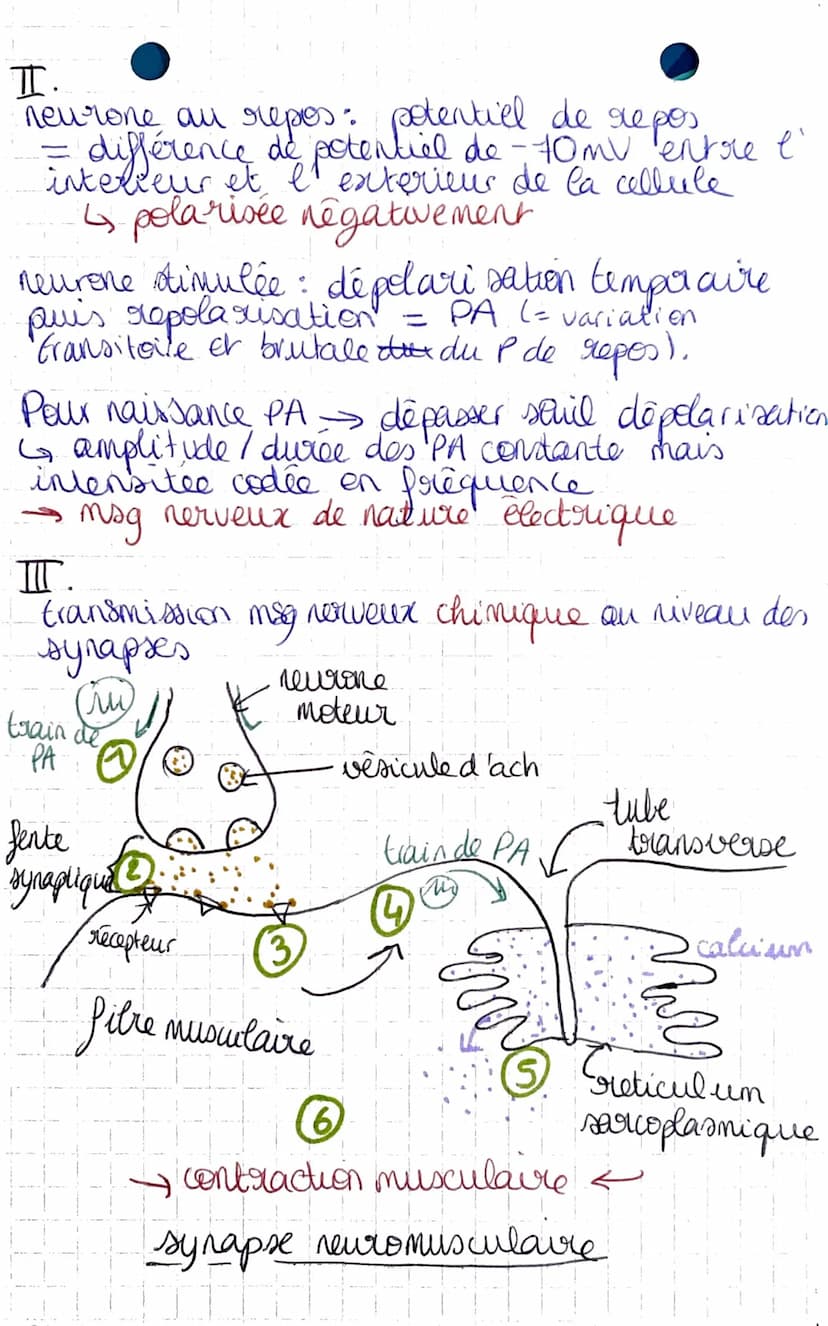 II.
neurone au repos : potentiel de repos
= différence de potentiel de -70mV entre l'
interieur et l'exterieur de la cellule
↳ polarisée négativement
neurone stimulée : dépolarisation temporaire
puis repolarisation = PA (= variation
transitoire et brutale du P de repos).
Pour naissance PA → dépasser seuil dépolarisation
↳ amplitude / durée des PA constante mais
intensitée codée en fréquence
→ msg nerveux de nature électrique
III.
transmission msg nerveux chimique au niveau des
synapses
neurone
moteur
train de
PA
1
vésicule d'ach
tube
transverse
fente
synaptique
2
train de PA
4
récepteur
3
calcium
fibre musculaire
5
reticulum
sarcoplasmique
6
→ contraction musculaire ←
synapse neuromusculaire